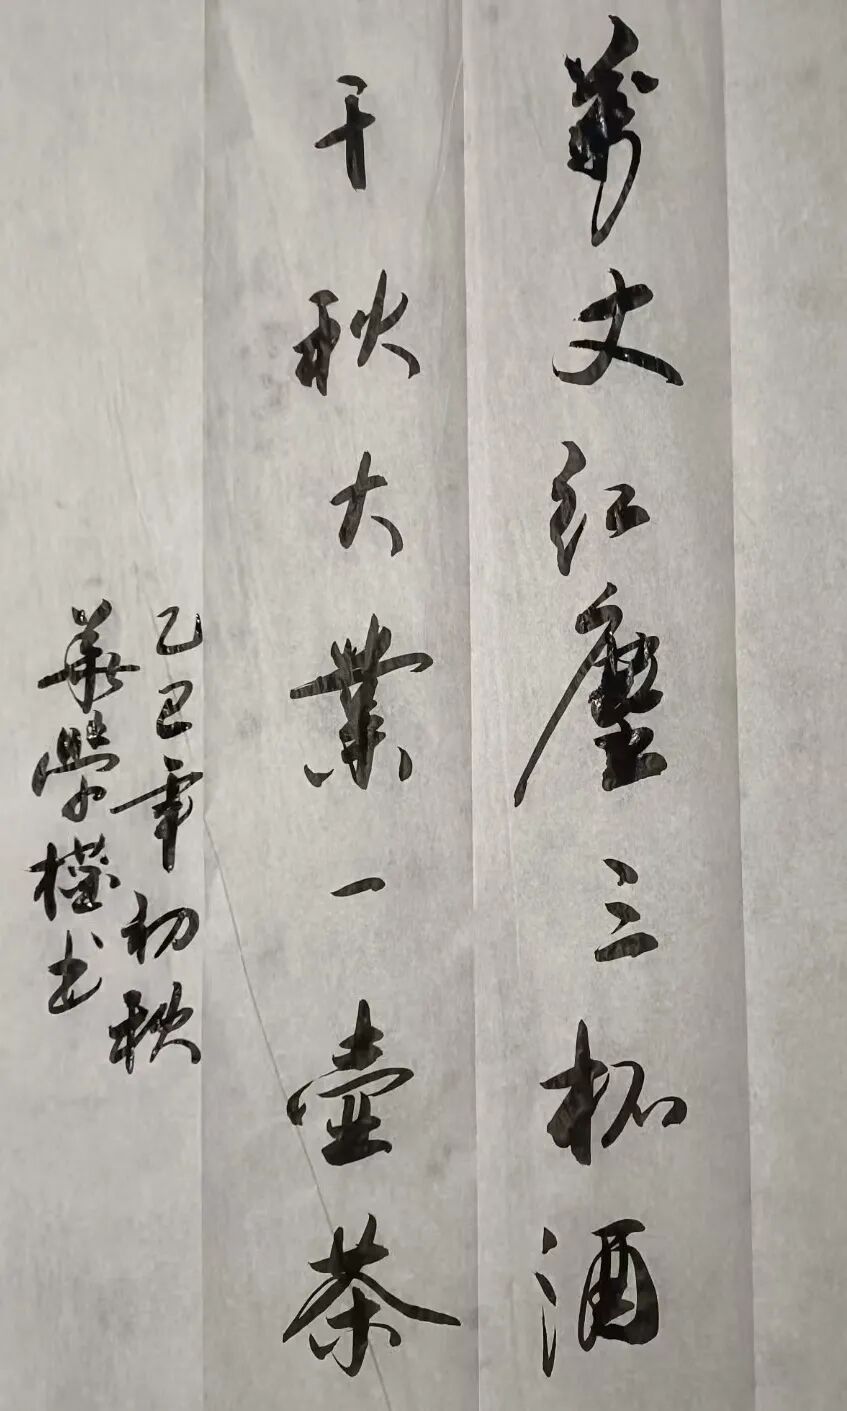 萬丈紅塵三杯酒
千秋大業一壺茶
乙巳年初秋
華榮櫁书